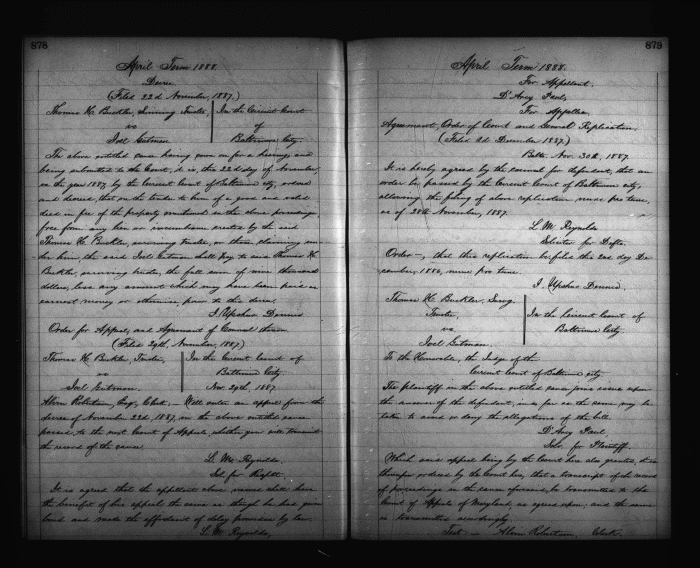 878
April Term 1888.
Decree
(Filed 22d November, 1887.)
Thomas H. Buckler, Surviving Trustee, | In the Circuit Court
vs | of
Joel Gutman | Baltimore City.
The above entitled cause having come on for a hearing and
being submitted to the Court, it is, this 22d day of November,
in the year 1887, by the Circuit Court of Baltimore city, ordered
and decreed, that on the tender to him of a good and valid
deed in fee of the property mentioned in the above proceedings,
free from any lien or incumbrance created by the said
Thomas H. Buckler, surviving trustee, or those claiming un-
der him, the said Joel Gutman shall pay to said Thomas H.
Buckler, surviving trustee, the full sum of nine thousand
dollars, less any amount which may have been paid as
earnest money or otherwise, prior to this decree.
J. Upshur Dennis
Order for Appeal, and Agreement of Counsel thereon
(Filed 29th November, 1887)
Thomas H. Buckler, Trustee, | In the Circuit Court of
vs | Baltimore City.
Joel Gutman. | Nov 29th, 1887
Alvin Robertson, Esq, Clerk, Will enter an appeal from the
decree of November 22d, 1887, in the above entitled cause
passed, to the next Court of Appeals, whither you will transmit
the record of the cause
L. M. Reynolds
Sol for
It is agreed that the appellant above named shall have
the benefit of his appeal the same as though he had given
bond and made the affidavit of delay provided by law.
L. M. Reynolds,
879
April Term 1888.
For Appellant.
D'Arcy Paul,
For Appellee.
Agreement, Order of Court and General Replication.
(Filed 2d December 1887.)
Balto. Nov. 30th, 1887.
It is hereby agreed by the counsel for defendant, that an
order be passed by the Circuit Court of Baltimore city,
allowing the filing of above replication nunc pro tunc,
as of 28th November, 1887.
L. M. Reynolds
Solicitor for Defts.
Order, that this replication be filed this 2nd day De-
cember, 1886, nunc pro tunc.
J. Upshur Dennis.
Thomas H. Buckler, Surg. | In the Circuit Court of
Trustee, | Baltimore City
vs
Joel Gutman.
To the Honorable, the Judge of the
Circuit Court of Baltimore city
The plaintiff in the above entitled cause joins issue upon
the answer of the defendant, in so far as the same may be
taken to avoid or deny the allegations of the bill
D'Arcy Paul,
Solr. for Plaintiff.
Which said appeal being by the Court here also granted, it is
thereupon ordered by the Court here, that a transcript of the record
of proceedings in the cause aforesaid, be transmitted to the
Court of Appeals of Maryland, as agreed upon; and the same
is transmitted accordingly.
Test - Alvin Robertson, Clerk.